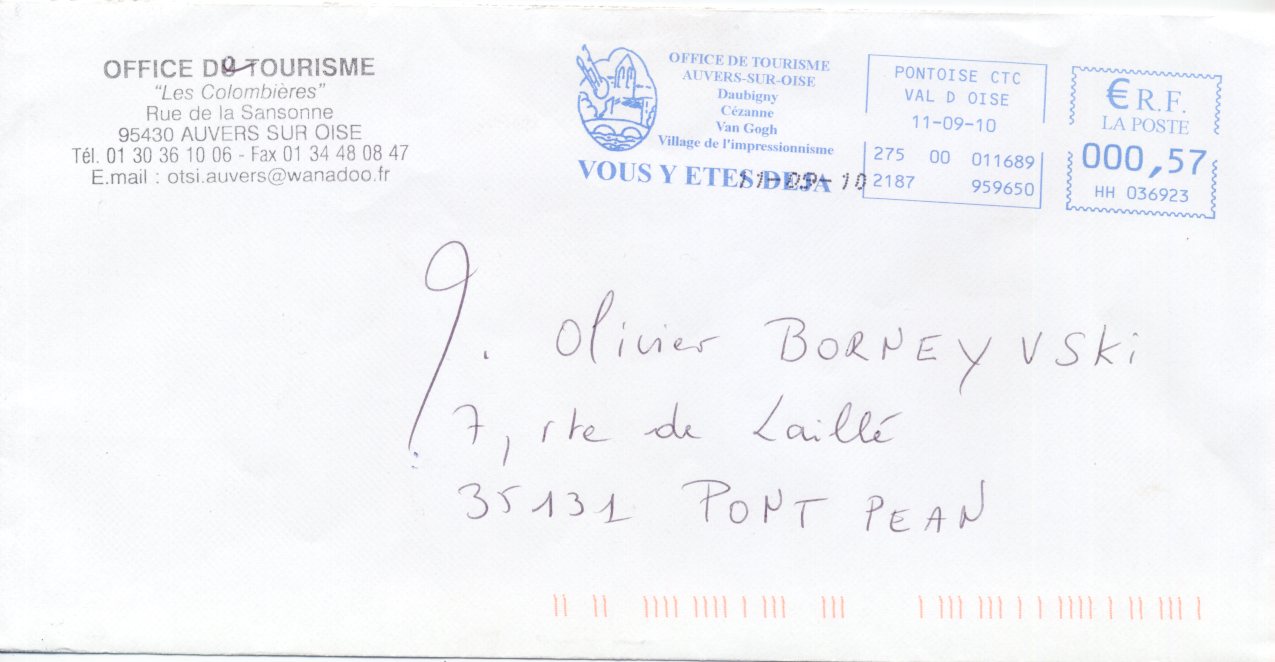 OFFICE De TOURISME
"Les Colombières"
Rue de la Sansonne
95430 AUVERS SUR OISE
Tél. 01 30 36 10 06 - Fax 01 34 48 08 47
E.mail : otsi.auvers@wanadoo.fr
OFFICE DE TOURISME
AUVERS-SUR-OISE
Daubigny
Cézanne
Van Gogh
Village de l'impressionnisme
VOUS Y ETES DEJA
11-09-10
PONTOISE CTC
VAL D OISE
11-09-10
275 00 011689
2187 959650
€ R.F.
LA POSTE
000,57
HH 036923
Olivier BORNEYVSKi
7, rte de Laillé
35131 PONT PEAN